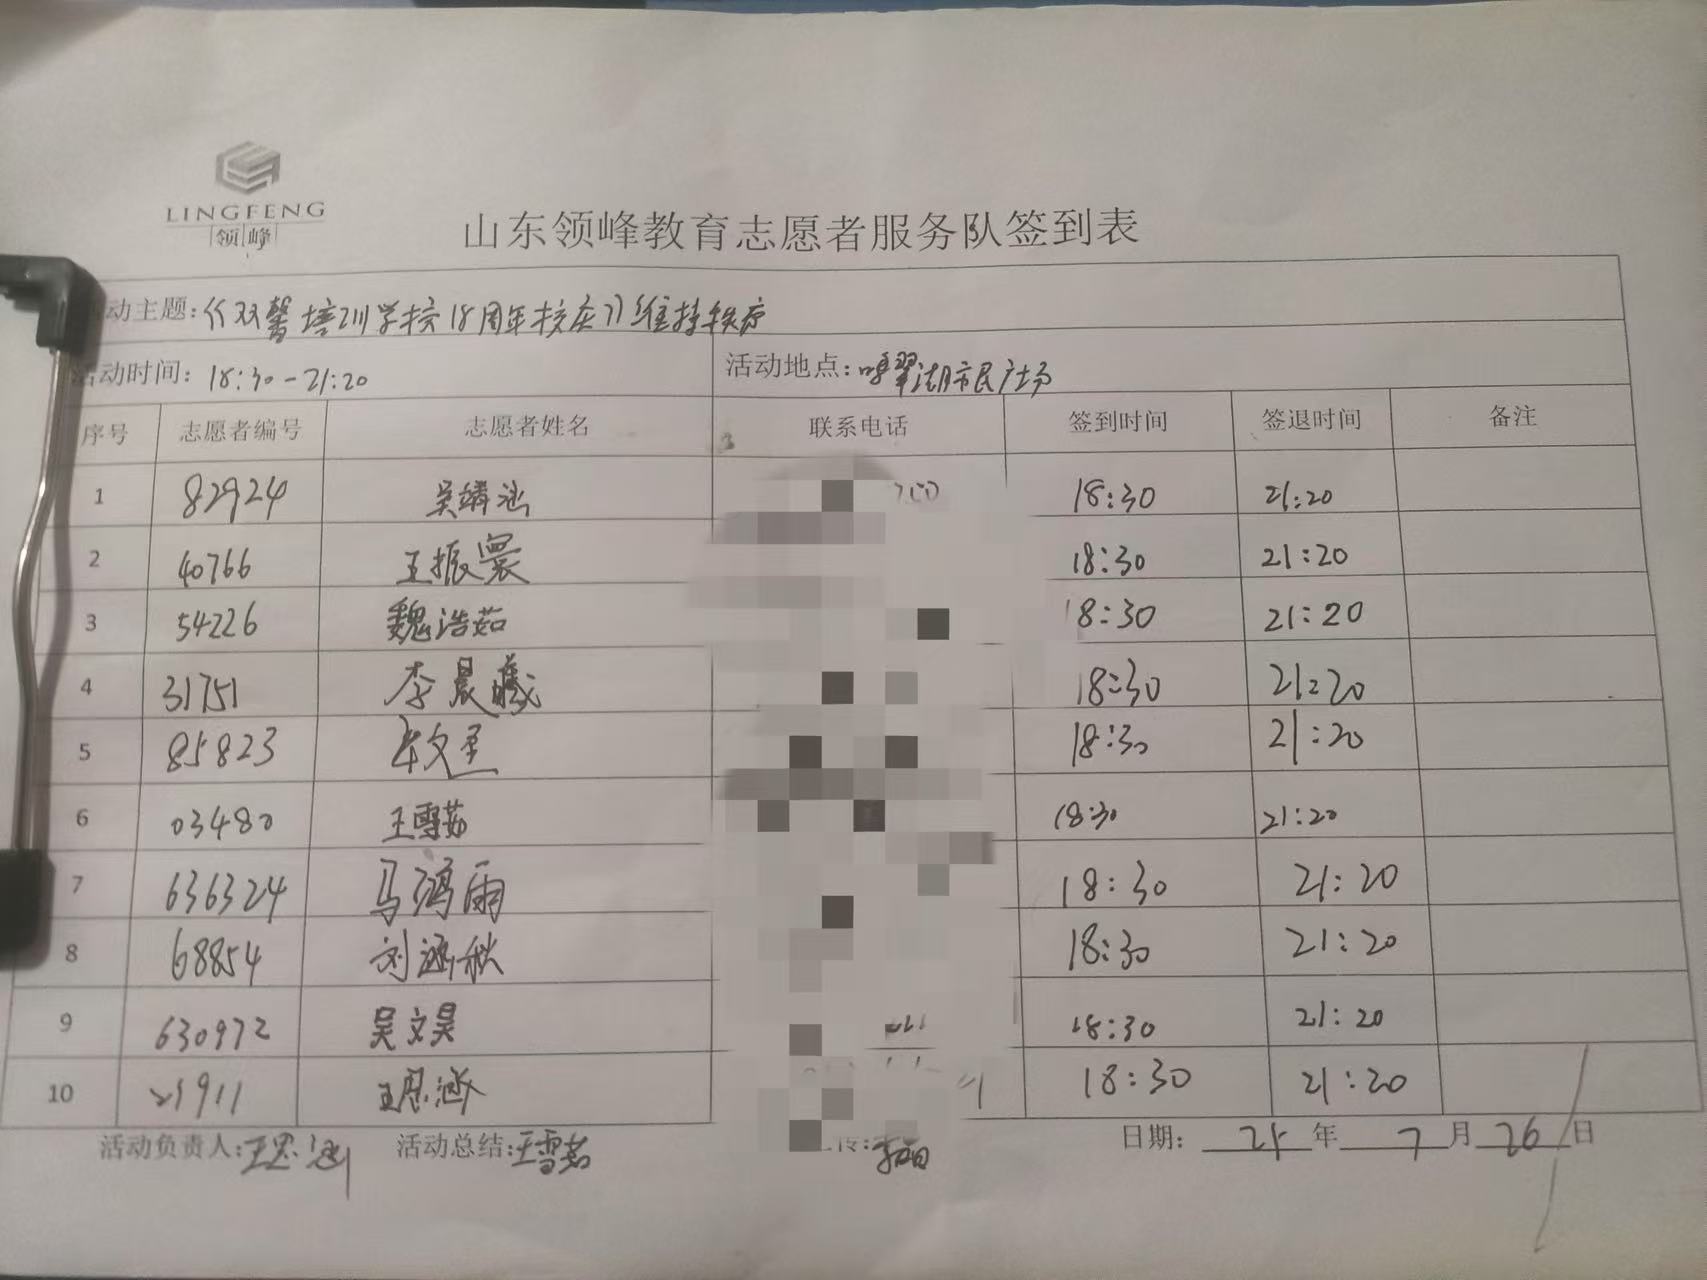 LINGFENG
领峰
山东领峰教育志愿者服务队签到表
动主题:双馨培训学校18周年校庆维持秩序
活动时间:18:30-21:20 活动地点:翠湖市民广场
序号 志愿者编号 志愿者姓名 联系电话 签到时间 签退时间 备注
1 82924 吴涵 18:30 21:20
2 40766 王振寰 18:30 21:20
3 54226 魏浩茹 18:30 21:20
4 31751 李晨曦 18:30 21:20
5 85823 18:30 21:20
6 03480 王雪茹 18:30 21:20
7 636324 马鸿雨 18:30 21:20
8 68854 刘涵秋 18:30 21:20
9 630972 吴文昊 18:30 21:20
10 21911 王思涵 18:30 21:20
活动负责人:王思涵 活动总结:王雪茹 日期: 25年7月26日